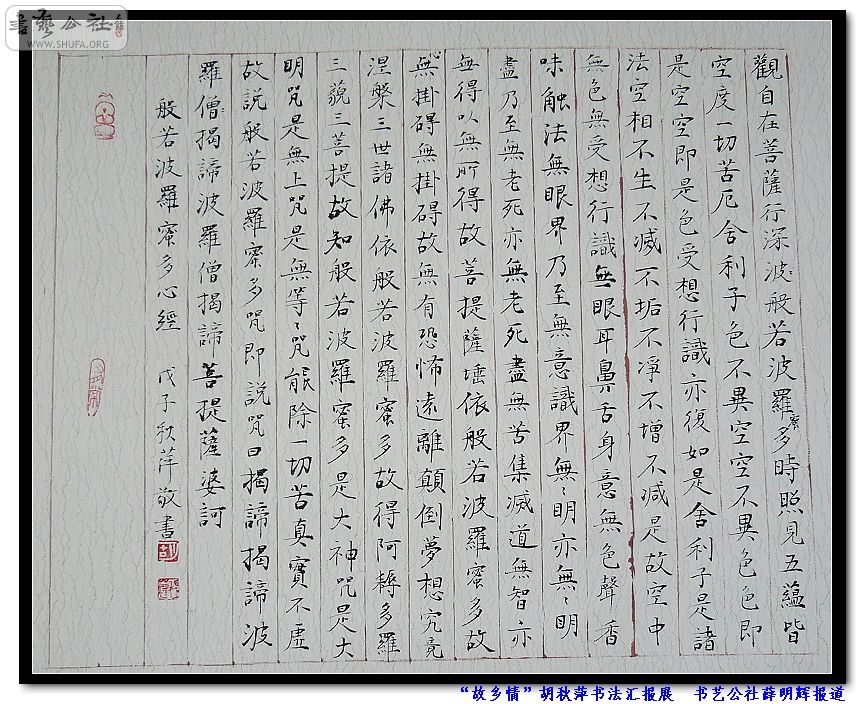 書藝公社
WWW.SHUFA.ORG
觀自在菩薩行深波般若波羅蜜多時照見五蘊皆
空度一切苦厄舍利子色不異空空不異色色即
是空空即是色受想行識亦復如是舍利子是諸
法空相不生不滅不垢不淨不增不減是故空中
無色無受想行識無眼耳鼻舌身意無色聲香
味触法無眼界乃至無意識界無〻明亦無〻明
盡乃至無老死亦無老死盡無苦集滅道無智亦
無得以無所得故菩提薩埵依般若波羅蜜多故
心無掛碍無掛碍故無有恐怖遠離顛倒夢想究竟
涅槃三世諸佛依般若波羅蜜多故得阿耨多羅
三藐三菩提故知般若波羅蜜多是大神咒是大
明咒是無上咒是無等〻咒能除一切苦真實不虛
故説般若波羅蜜多咒即説咒曰揭諦揭諦波
羅僧揭諦波羅僧揭諦菩提薩婆訶
般若波羅蜜多心經 戊子秋萍敬書
“故乡情”胡秋萍书法汇报展 书艺公社薛明辉报道